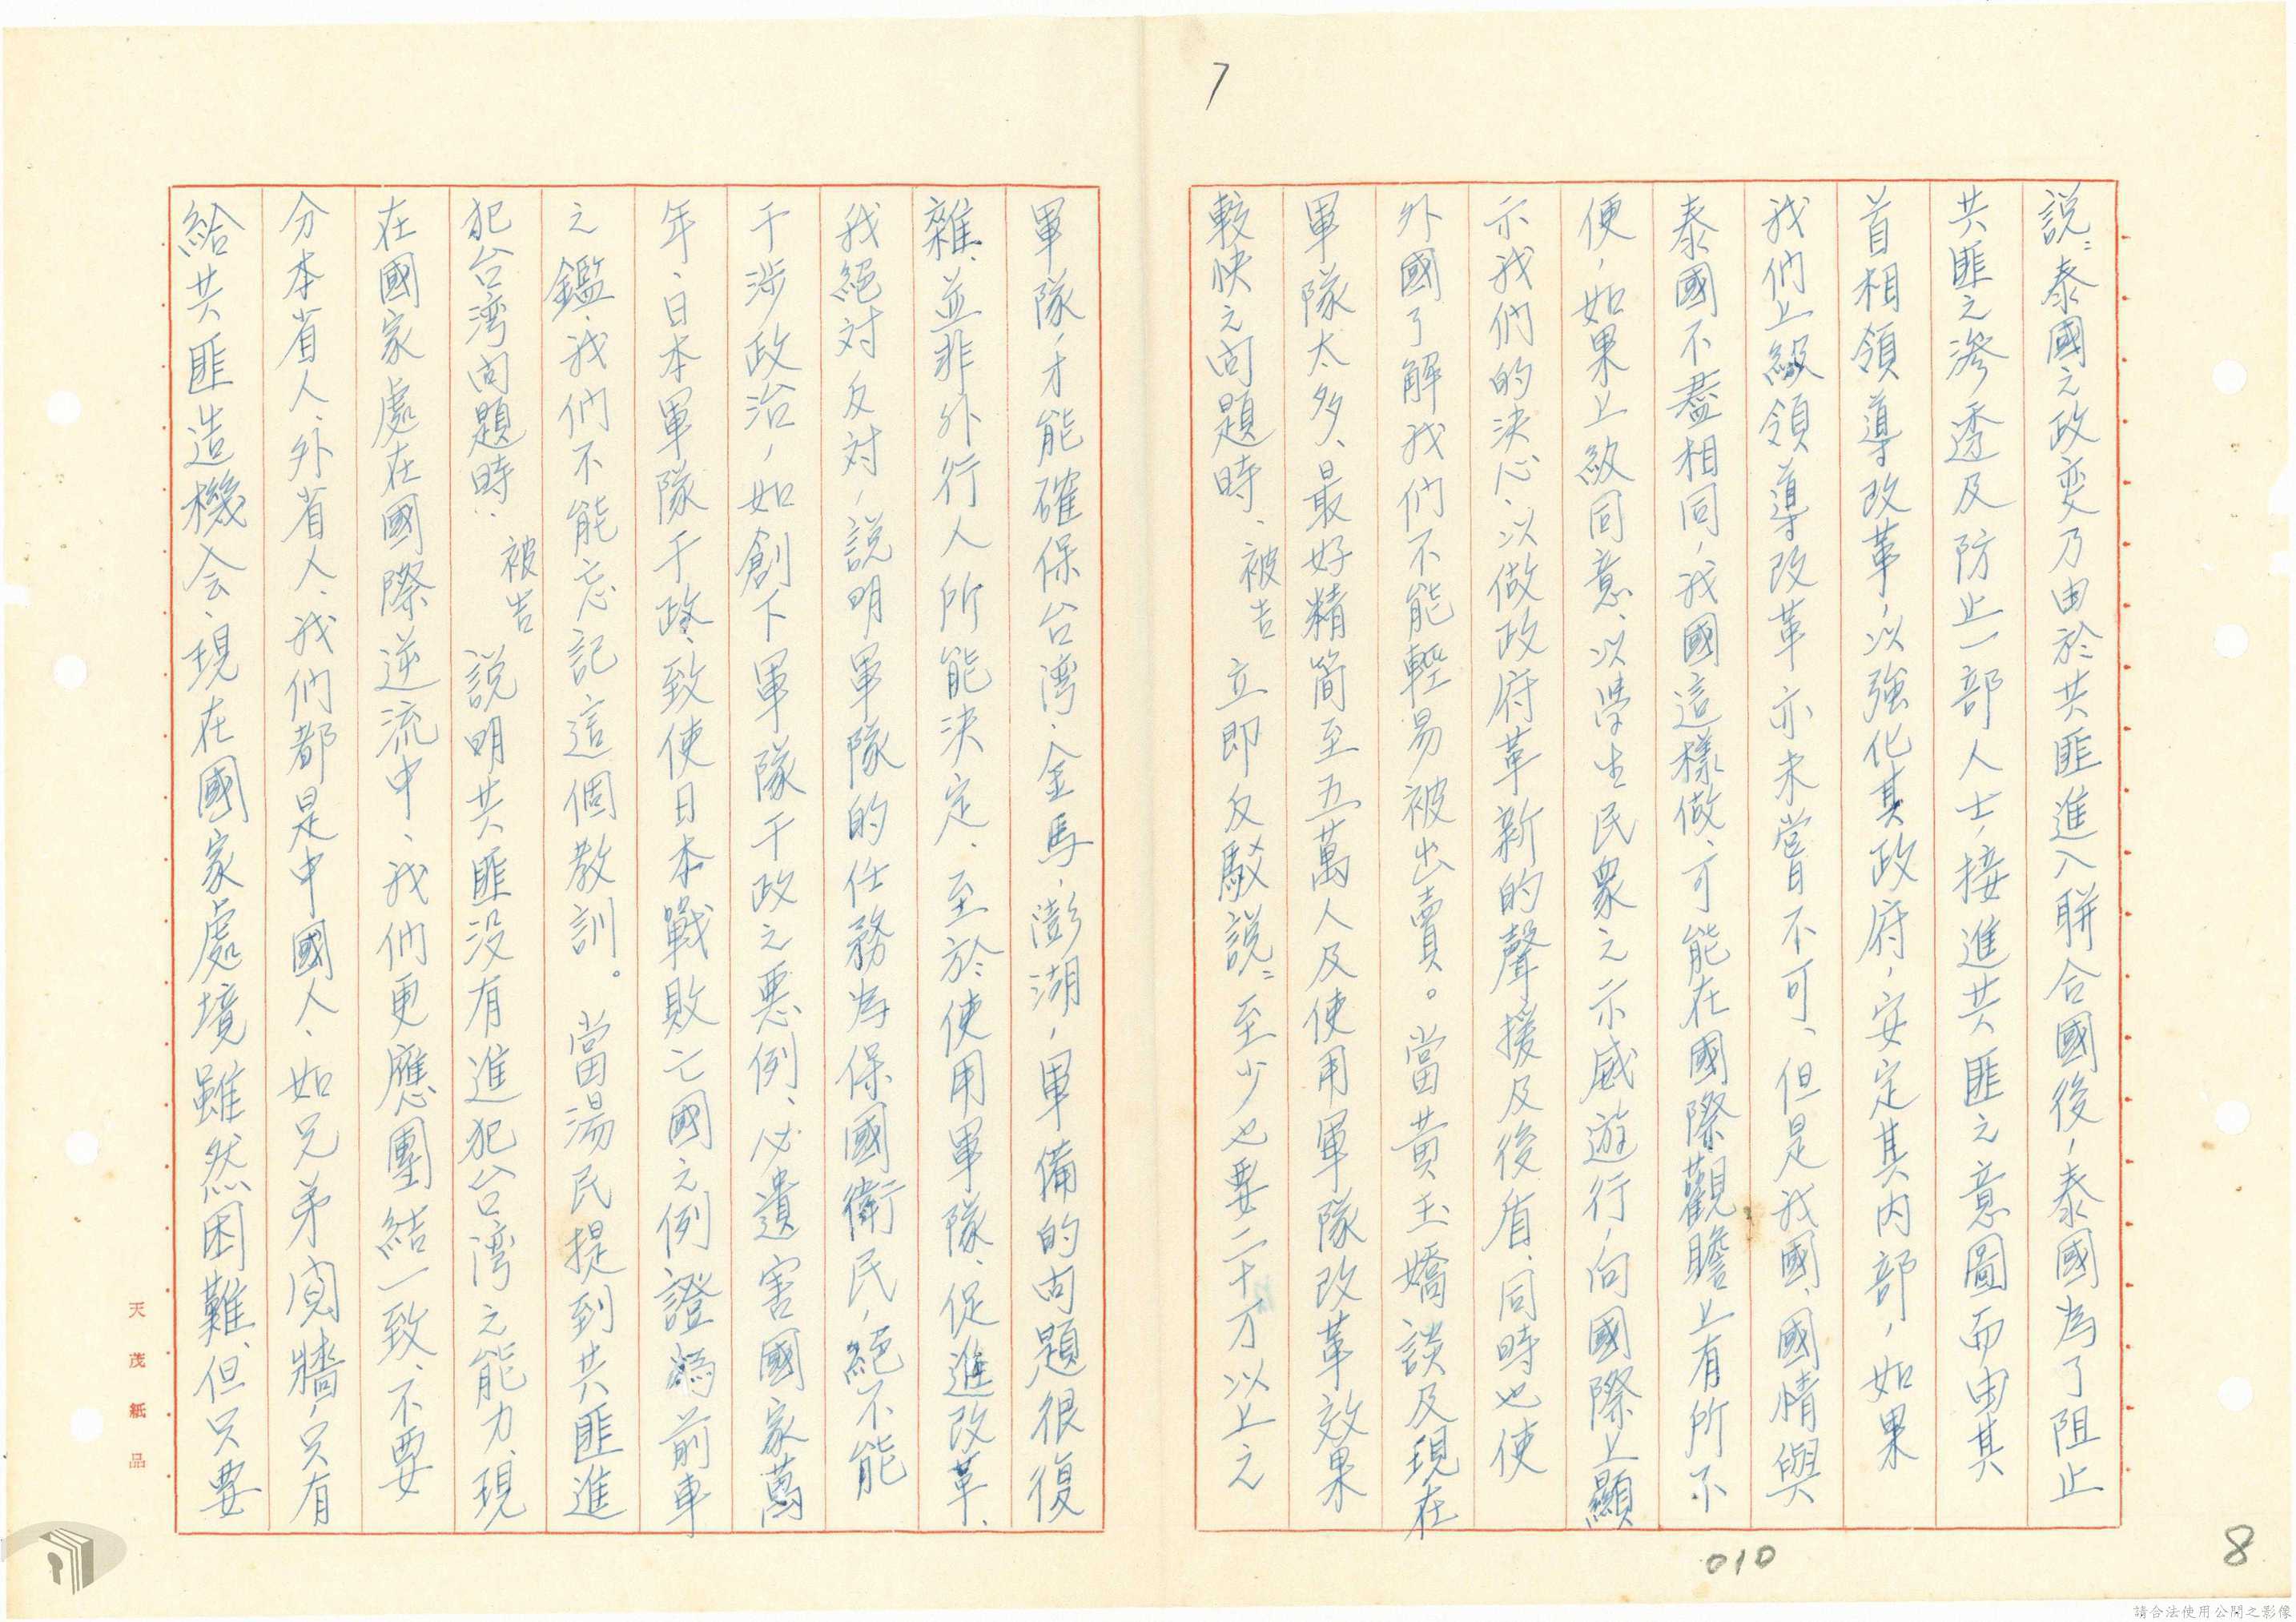 7
說:泰國之政変乃由於共匪進入聯合國後,泰國為了阻止
共匪之滲透及防止一部人士,接進共匪之意圖而由其
首相領導改革,以強化其政府,安定其内部,如果
我們上級領導改革亦未嘗不可、但是我國、國情與
泰國不盡相同,我國這樣做、可能在國際觀瞻上有所不
便,如果上級同意、以學生民眾之示威遊行,向國際上顯
示我們的決心、以做政府革新的聲援及後盾、同時也使
外國了解我們不能輕易被出賣。當黃玉嬌談及現在
軍隊太多、最好精簡至五萬人及使用軍隊改革效果
較快之问題時、被告 立即反駁說:至少也要二十万以上之
軍隊,才能確保台湾、金馬、澎湖,軍備的问題很復
雜、並非外行人所能決定、至於使用軍隊、促進改革、
我絕対反対,說明軍隊的任務為保國衛民,絕不能
干涉政治,如創下軍隊干政之惡例、必遺害國家萬
年、日本軍隊干政、致使日本戰敗亡國之例證為前車
之鑑、我們不能忘記這個教訓。當湯民提到共匪進
犯台湾问題時:被告 說明共匪没有進犯台湾之能力、現
在國家處在國際逆流中、我們更應團結一致、不要
分本省人、外省人、我們都是中國人、如兄弟鬩牆,只有
給共匪造機会、現在國家處境雖然困難、但只要
天茂紙品
010
8
請合法使用公開之影像